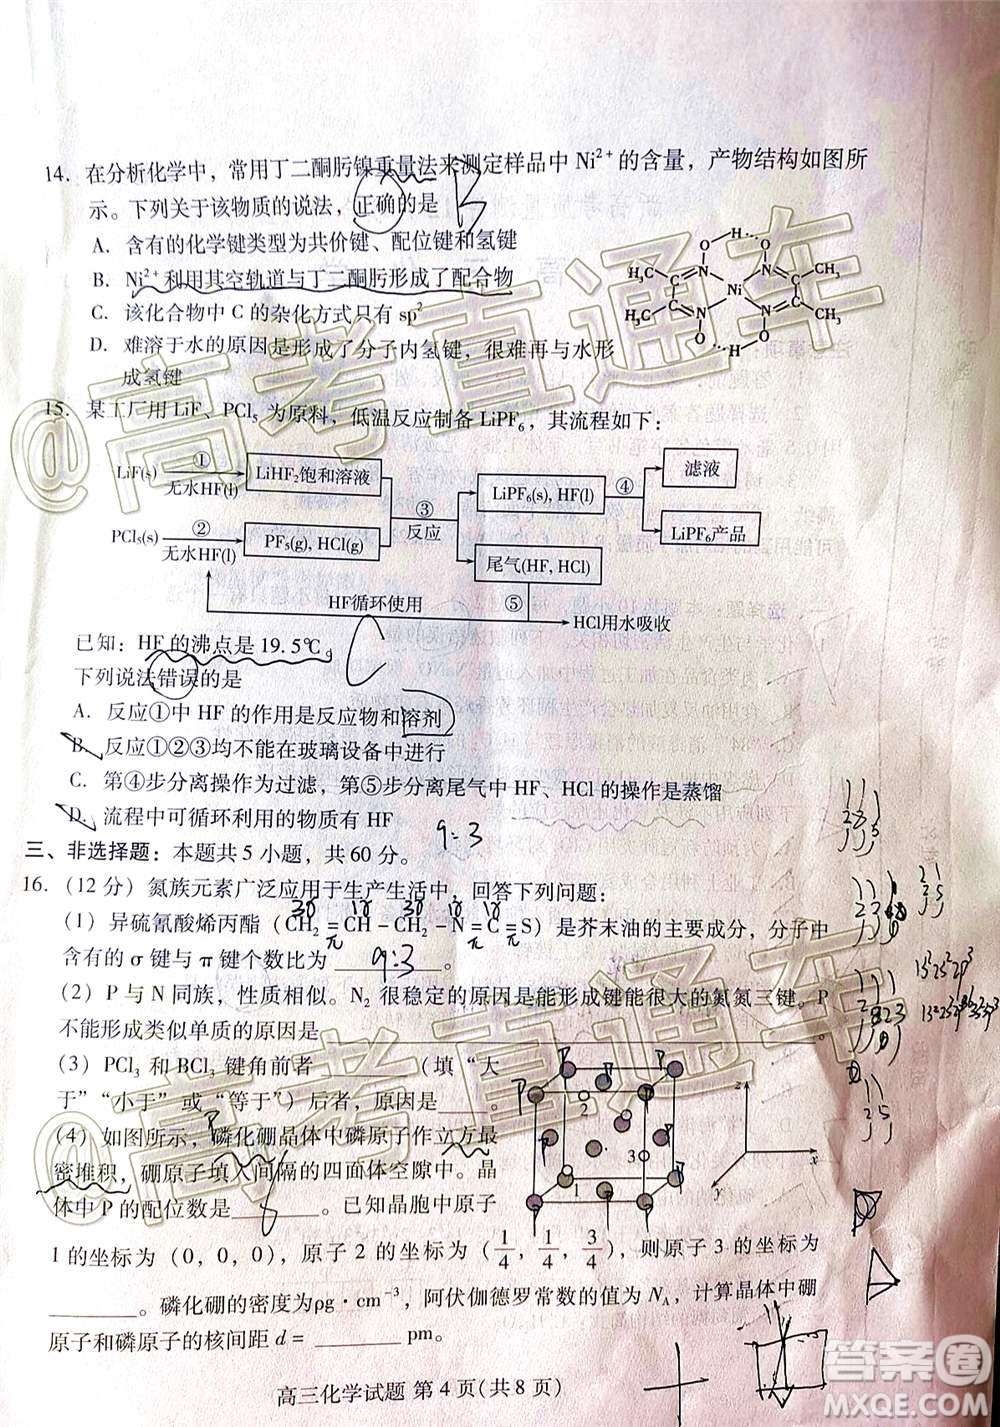 14. 在分析化学中，常用丁二酮肟镍重量法来测定样品中 Ni²⁺ 的含量，产物结构如图所
示。下列关于该物质的说法，正确的是 B
A. 含有的化学键类型为共价键、配位键和氢键
B. Ni²⁺ 利用其空轨道与丁二酮肟形成了配合物
C. 该化合物中 C 的杂化方式只有 sp²
D. 难溶于水的原因是形成了分子内氢键，很难再与水形
成氢键
O—H…O
H₃C N N CH₃
Ni
H₃C N N CH₃
O…H—O
15. 某工厂用 LiF、PCl₅ 为原料，低温反应制备 LiPF₆，其流程如下：
LiF(s) ① 无水HF(l) LiHF₂饱和溶液
PCl₅(s) ② 无水HF(l) PF₅(g), HCl(g)
③ 反应
LiPF₆(s), HF(l) ④ 滤液
LiPF₆产品
尾气(HF, HCl)
⑤
HF循环使用
HCl用水吸收
已知：HF 的沸点是 19.5℃。
下列说法错误的是 C
A. 反应①中 HF 的作用是反应物和溶剂
B. 反应①②③均不能在玻璃设备中进行
C. 第④步分离操作为过滤，第⑤步分离尾气中 HF、HCl 的操作是蒸馏
D. 流程中可循环利用的物质有 HF
9:3
三、非选择题：本题共 5 小题，共 60 分。
16. （12 分）氮族元素广泛应用于生产生活中，回答下列问题：
（1）异硫氰酸烯丙酯（CH₂=CH-CH₂-N=C=S）是芥末油的主要成分，分子中
含有的 σ 键与 π 键个数比为 9:3 。
（2）P 与 N 同族，性质相似。N₂ 很稳定的原因是能形成键能很大的氮氮三键。P
不能形成类似单质的原因是
（3）PCl₃ 和 BCl₃ 键角前者 （填“大
于”“小于”或“等于”）后者，原因是 。
（4）如图所示，磷化硼晶体中磷原子作立方最
密堆积，硼原子填入间隔的四面体空隙中。晶
体中 P 的配位数是 8 。已知晶胞中原子
1 的坐标为（0，0，0），原子 2 的坐标为（1/4，1/4，3/4），则原子 3 的坐标为
。磷化硼的密度为ρg·cm⁻³，阿伏伽德罗常数的值为 Nₐ，计算晶体中硼
原子和磷原子的核间距 d = pm。
1
2
3
z
y
x
高三化学试题 第 4 页(共 8 页)
@高考直通车
@高考直通车
答案圈
MXQE.COM